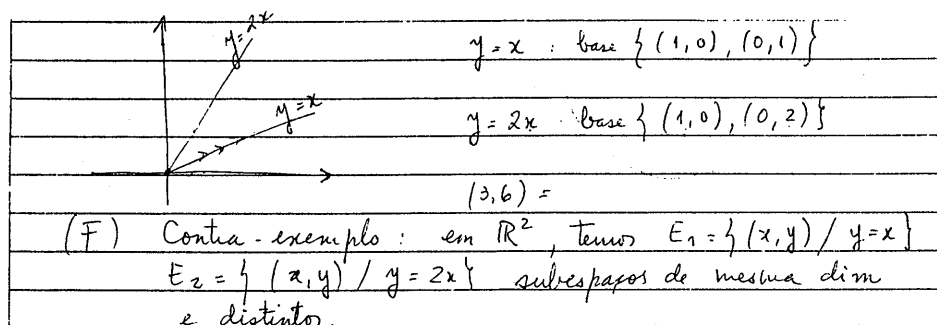 y=2x
y=x : base { (1,0), (0,1) }
y=x
y=2x : base { (1,0), (0,2) }
(3,6) =
(F) Contra-exemplo : em ℝ², temos E₁ = { (x,y) / y=x }
E₂ = { (x,y) / y=2x } subespaços de mesma dim
e distintos.